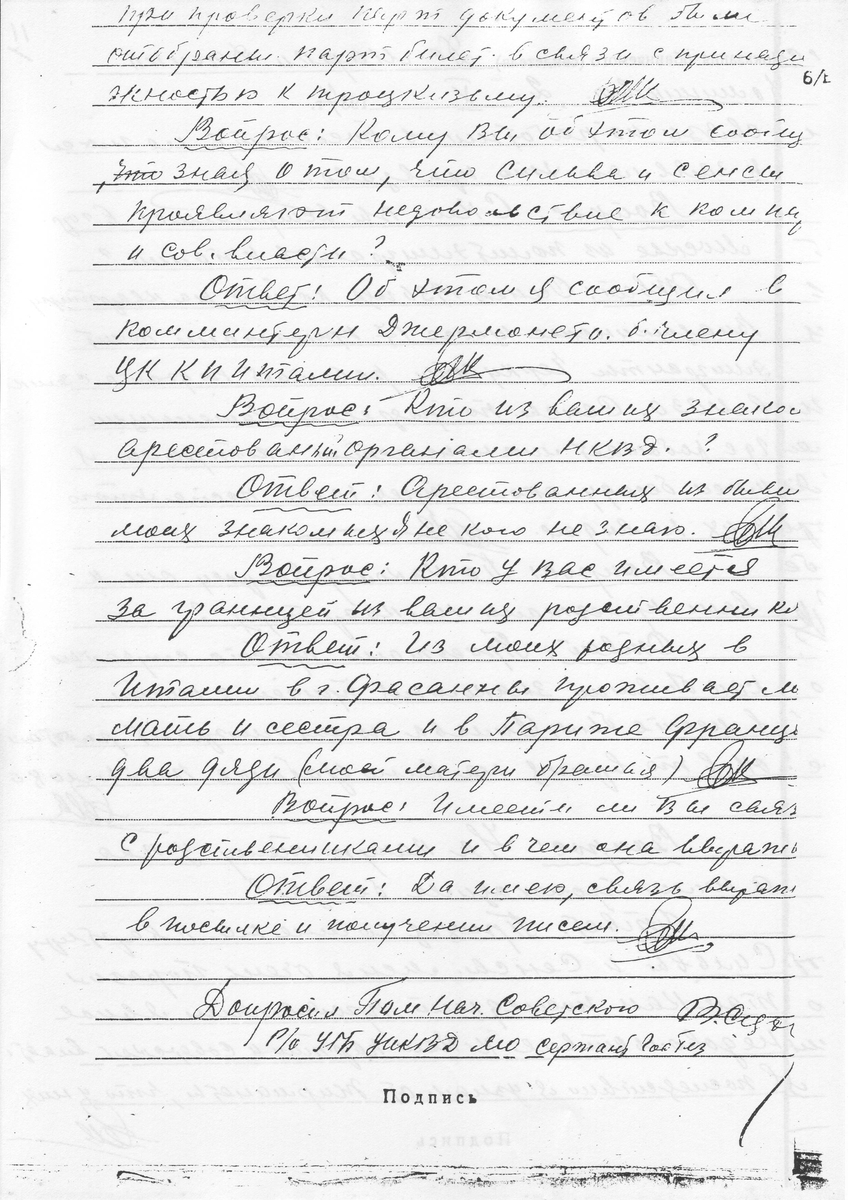 при проверки парт документов были
отобраны парт билет в связи с принадл
6/1
жностью к троцкизьму.
Вопрос: Кому Вы об этом сообщ
, что зная о том, что Сильва и Сенси
проявляют недовольствие к компар
и сов. власти?
Ответ: Об этом я сообщил в
Коммintерн Джермането. б. члену
ЦК КП Италии.
Вопрос: Кто из ваших знаком
арестованы органами НКВД.?
Ответ: Арестованных из бывши
моих знакомых я не кого не знаю.
Вопрос: Кто у Вас имеется
за границей из ваших родственнико
Ответ: Из моих родных в
Италии в г. Фасанны проживает м
мать и сестра и в Париже Франци
два дяди (моей матери братья)
Вопрос: Имеете ли Вы связ
с родственниками и в чем она выражае
Ответ: Да имею, связь выраж
в посылке и получении писем.
Допросил Пом Нач. Советского
Р/о УГБ УНКВД МО сержант Гос без
Подпись